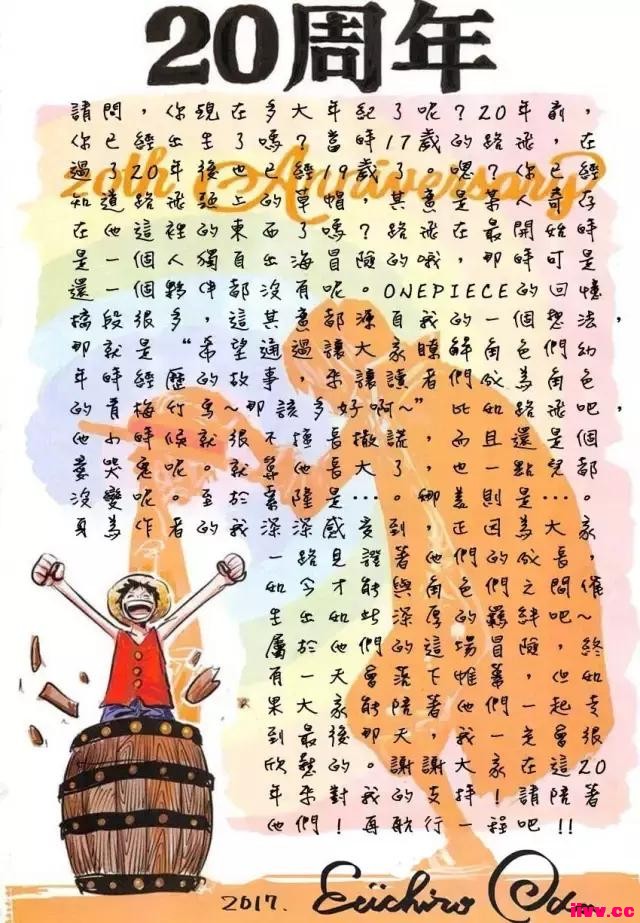 20周年
請問，你現在多大年紀了呢？20年前，
你已經出生了嗎？當時17歲的路飛，在
過了20年後也已經19歲了。嗯？你已經
知道路飛頭上的草帽，其實是某人寄存
在他這裡的東西了嗎？路飛在最開始時
是一個人獨自出海冒險的哦，那時可是
還一個夥伴都沒有呢。ONEPIECE的回憶
橋段很多，這其實都源自我的一個想法，
那就是“希望通過讓大家瞭解角色們幼
年時經歷的故事，來讓讀者們成為角色
的青梅竹馬～那該多好啊～”比如路飛吧，
他小時候就很不擅長撒謊，而且還是個
愛哭鬼呢。就算他長大了，也一點兒都
沒變呢。至於索隆是…。娜美則是…。
身為作者的我深深感受到，正因為大家
一路見證著他們的成長，
如今才能與角色們之間催
生出如此深厚的羈絆吧～
屬於他們的這場冒險，終
有一天會落下帷幕，但如
果大家能陪著他們一起走
到最後那天，我一定會很
欣慰的。謝謝大家在這20
年來對我的支持！請陪著
他們！再航行一程吧！！
20th Anniversary
2017. Eiichiro Oda
iivv.cc